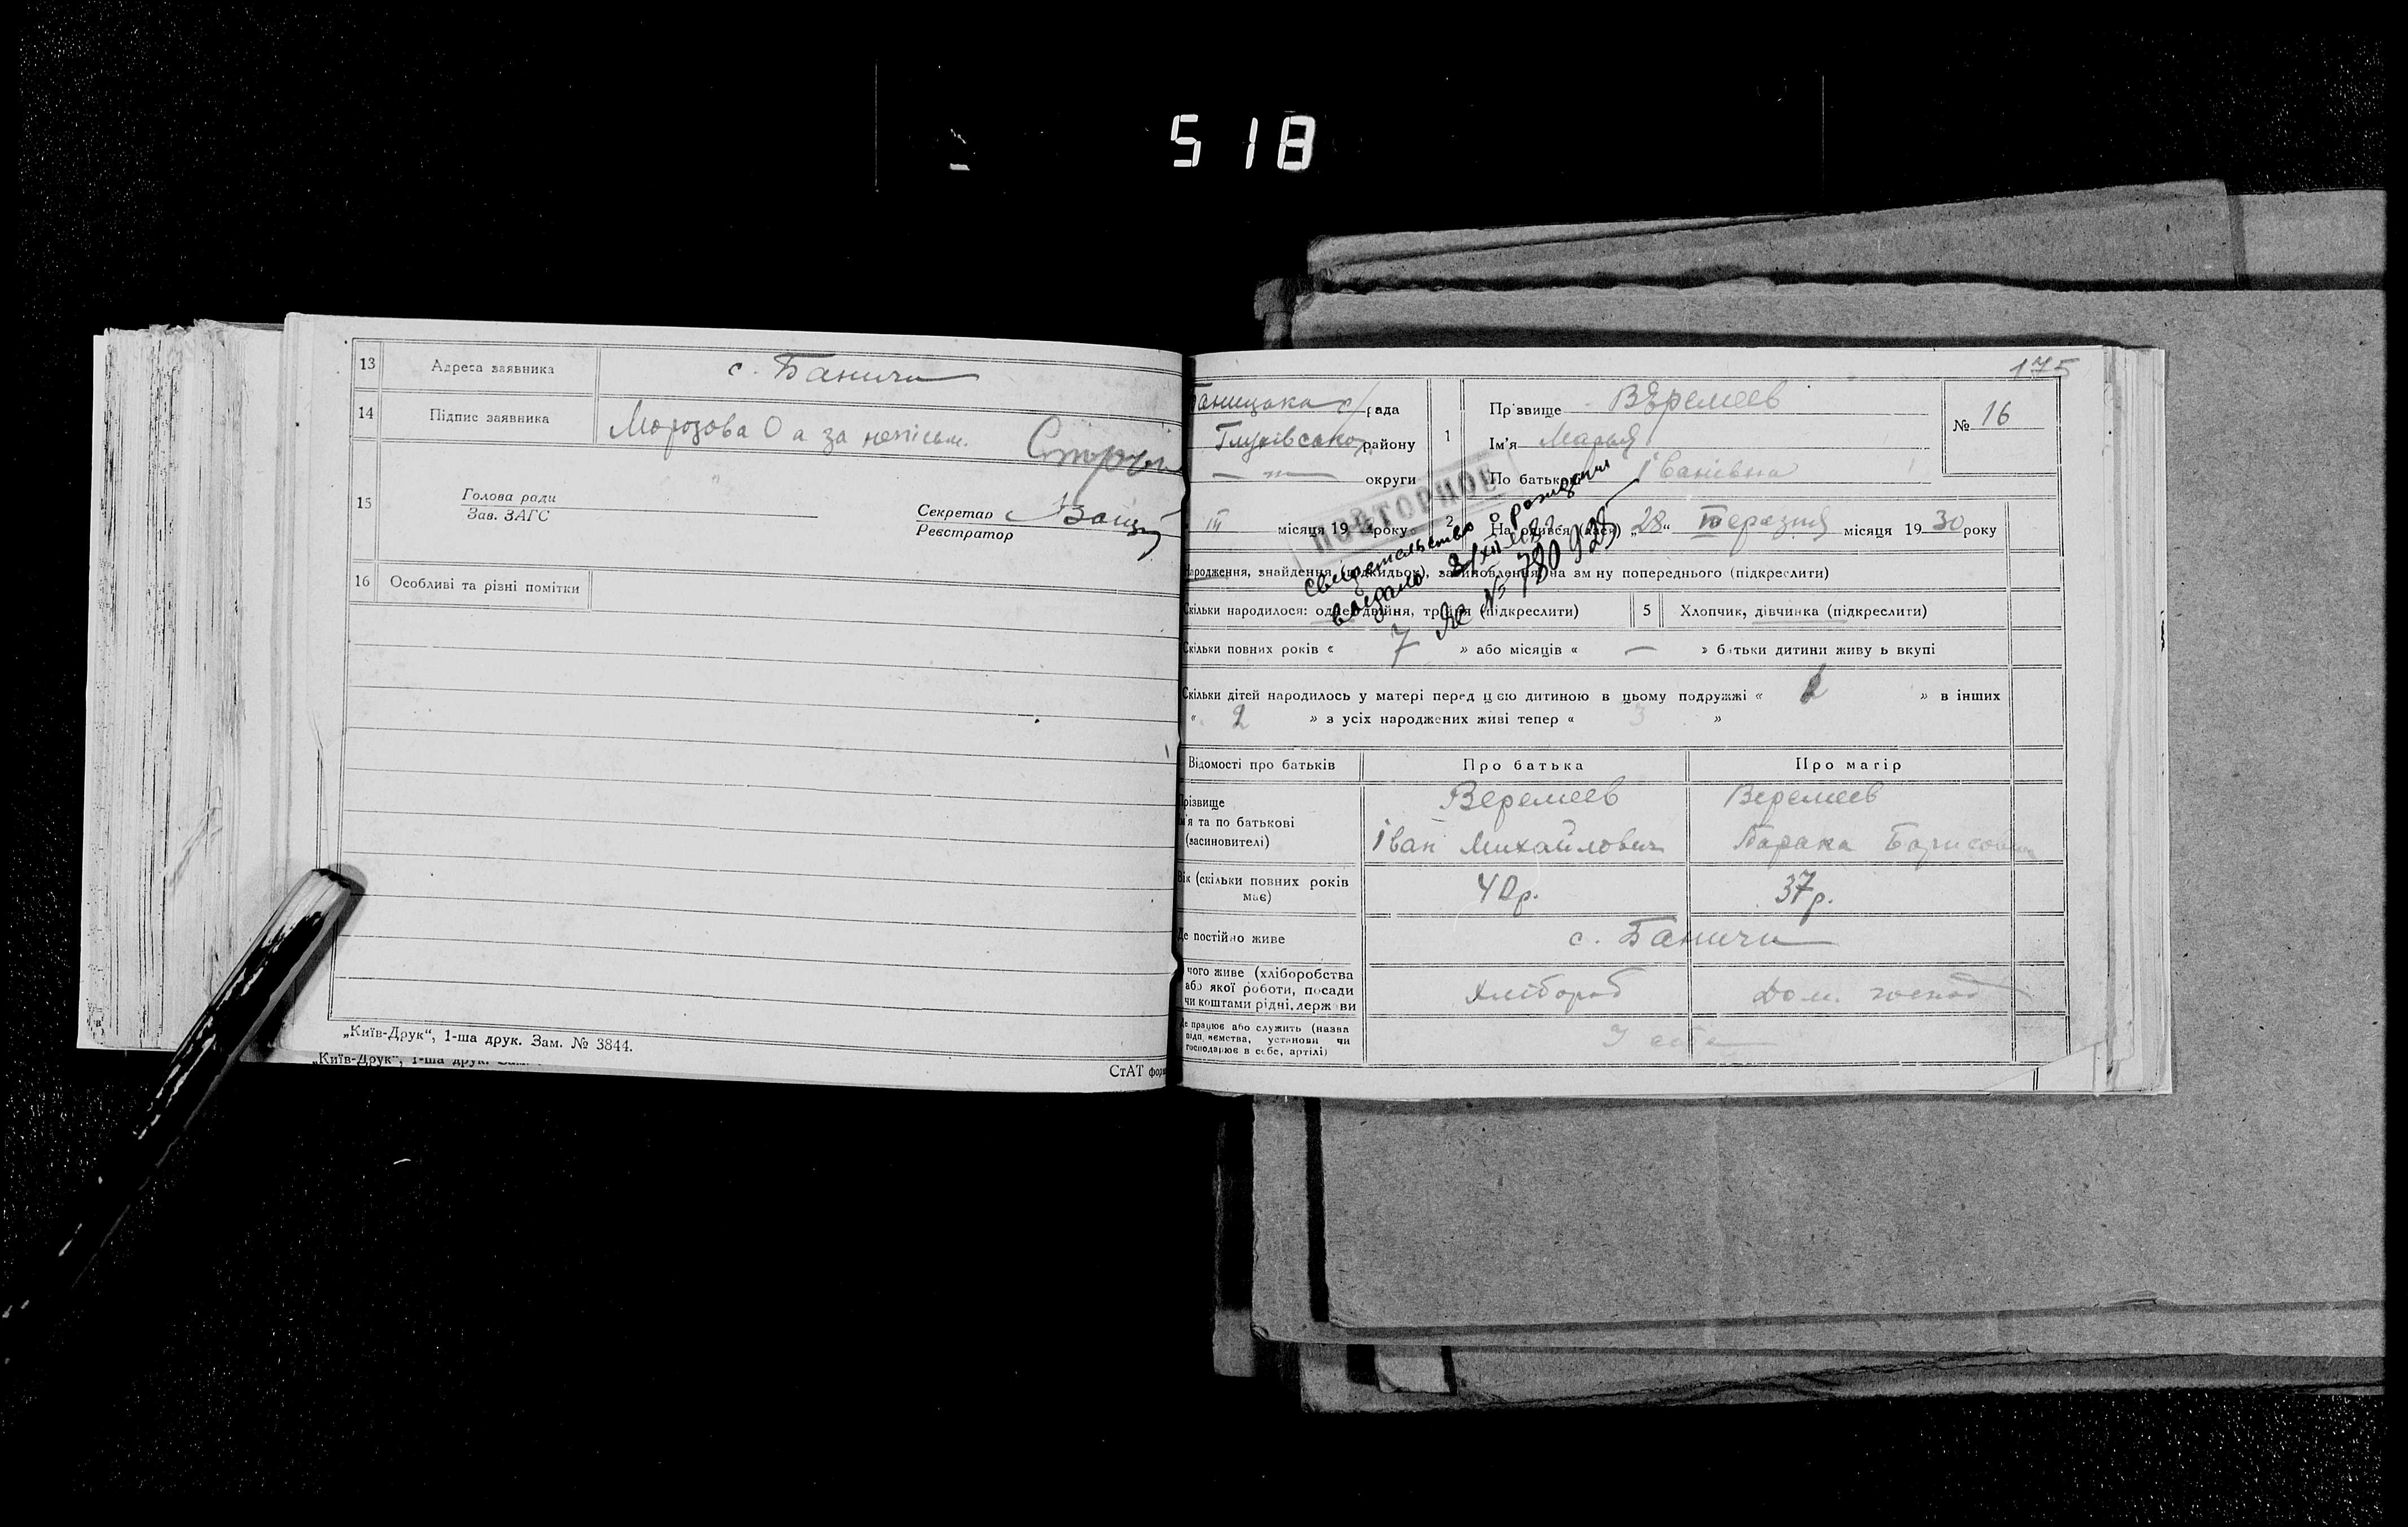 518
13 Адреса заявника с. Баничи
14 Підпис заявника Морозова О а за неписьм.
15 Голова ради
Зав. ЗАГС
Секретар
Реєстратор
16 Особливі та різні помітки
„Київ-Друк“, 1-ша друк. Зам. № 3844.
„Київ-Друк“, 1-ша друк. Зам.
СтАТ
175
рада
Глухівського району
округи
1 Прізвище Веремеев
Ім'я Марья
По батькові Іванівна
№ 16
III місяця 19 року
2 Народився (лася) „28“ Березня місяця 1930 року
ПОВТОРНОЕ
свидетельство о рождении
выдано
№ 780928
Народження, знайдення (підкидьок), засиновлення, на зміну попереднього (підкреслити)
Скільки народилося: одне, двійня, трійня (підкреслити) 5 Хлопчик, дівчинка (підкреслити)
Скільки повних років « 7 » або місяців « — » батьки дитини живуть вкупі
Скільки дітей народилось у матері перед цією дитиною в цьому подружжі « » в інших
« 2 » з усіх народжених живі тепер « 3 »
Відомості про батьків Про батька Про матір
Прізвище Веремеев Веремеев
Ім'я та по батькові
(засиновителі) Іван Михайлович Борисовна
Вік (скільки повних років
має) 40р. 37р.
Де постійно живе с. Баничи
чого живе (хліборобства
або якої роботи, посади
чи коштами рідні, держави Хлібороб Дом. господ
Де працює або служить (назва
підприємства, установи чи
господарює в себе, артілі) У себе